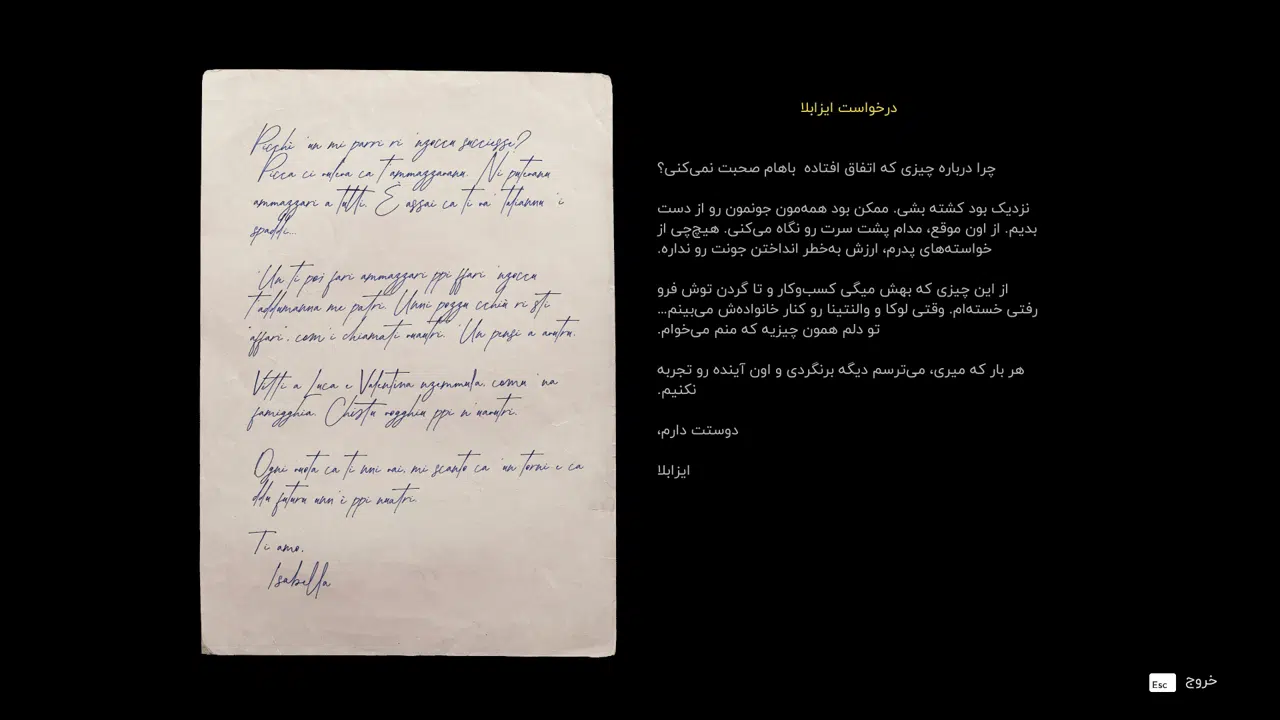 Picchì 'un mi parri ri 'nzoccu successe?
Picca ci vuleva ca t'ammazzaranu. Ni putevanu
ammazzari a tutti. È assai ca ti va' taliannu 'i
spaddi...
'Un ti poi fari ammazzari ppi ffari 'nzoccu
t'addumanna me patri. Unni pozzu cchiù ri sti
'affari', com'i chiamati vuautri. 'Un pensi a autru.
Vitti a Luca e Valentina nzemmula, comu 'na
famigghia. Chistu vogghiu ppi n'uautri.
Ogni vuota ca ti nni vai, mi scanto ca 'un torni e ca
ddu futuru unn'è ppi nuatri.
Ti amo,
Isabella
درخواست ایزابلا
چرا درباره چیزی که اتفاق افتاده باهام صحبت نمی‌کنی؟
نزدیک بود کشته بشی. ممکن بود همه‌مون جونمون رو از دست
بدیم. از اون موقع، مدام پشت سرت رو نگاه می‌کنی. هیچ‌چی از
خواسته‌های پدرم، ارزش به‌خطر انداختن جونت رو نداره.
از این چیزی که بهش میگی کسب‌وکار و تا گردن توش فرو
رفتی خسته‌ام. وقتی لوکا و والنتینا رو کنار خانواده‌ش می‌بینم...
تو دلم همون چیزیه که منم می‌خوام.
هر بار که میری، می‌ترسم دیگه برنگردی و اون آینده رو تجربه
نکنیم.
دوستت دارم،
ایزابلا
Esc خروج